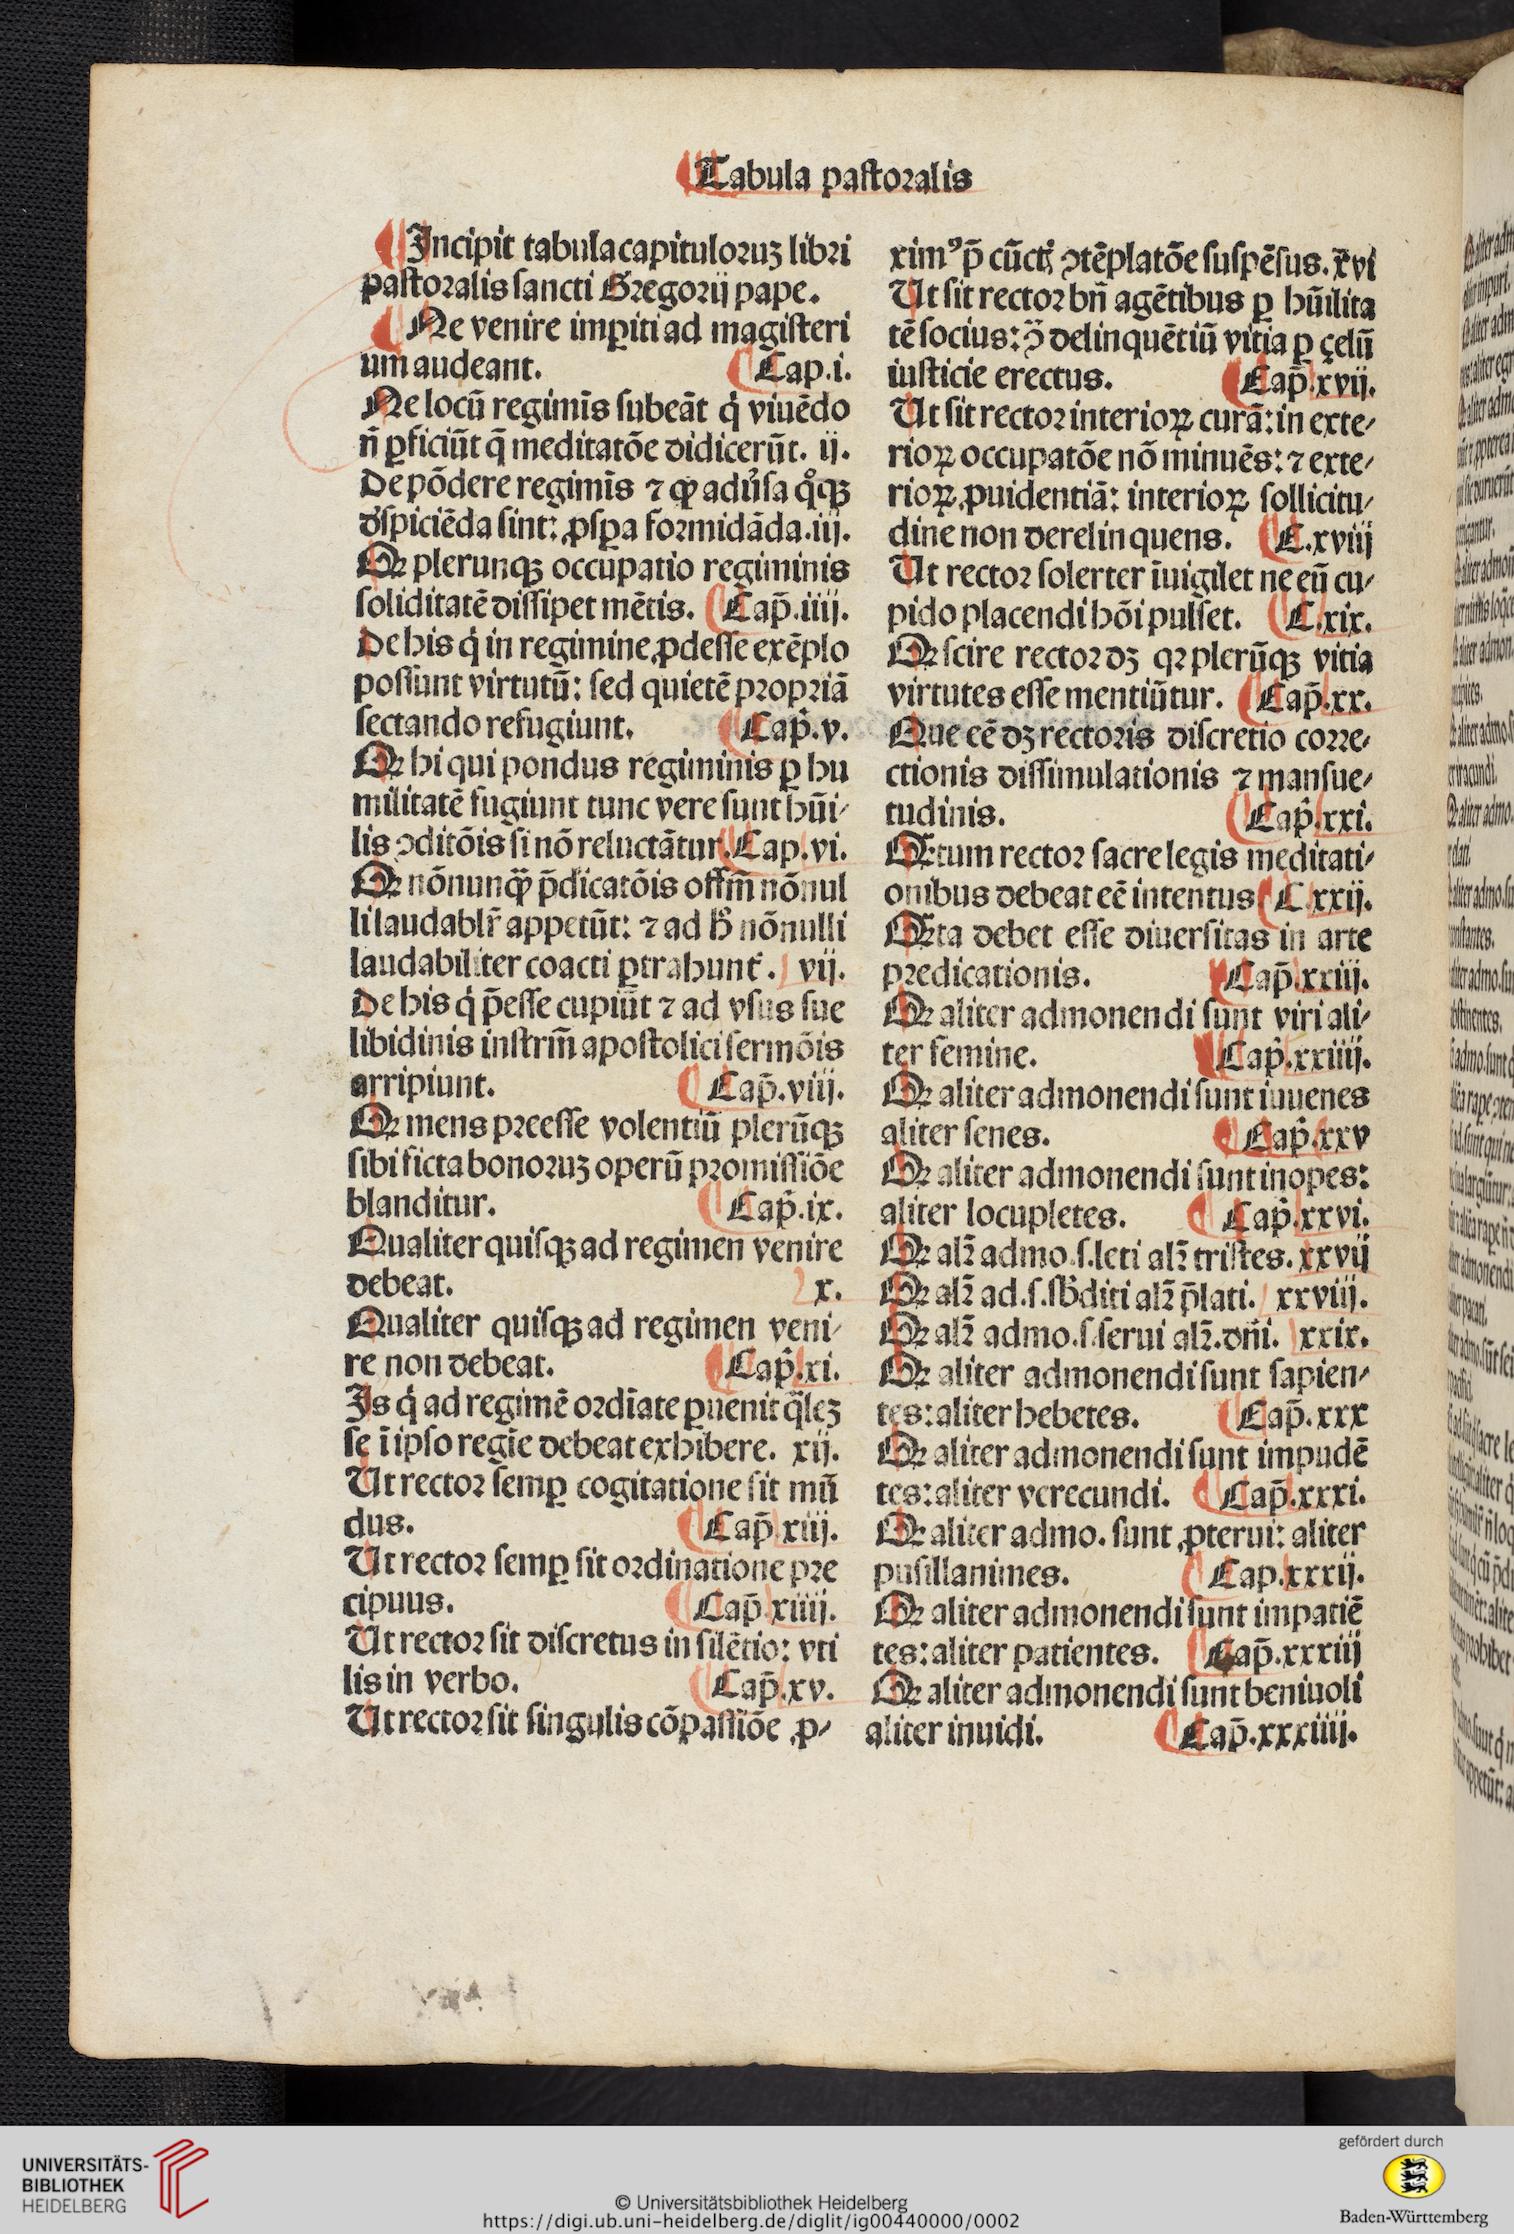 Tabula pastoralis
Incipit tabula capituloruꝫ libri
pastoralis sancti Gregorij pape.
Ne venire imꝑiti ad magisteri
um audeant. Cap.i.
Ne locū regimīs subeāt qͥ viuēdo
n̄ ꝑficiūt q̄ meditatōe didicerūt. ij.
De pōdere regimīs ⁊ ꝙ adu͛sa qͦꝫ
d͛spiciēda sint: ꝓsꝑa formidāda.iij.
Qꝛ plerunqꝫ occupatio regiminis
soliditatē dissipet mētis. Cap̄.iiij.
De his qͥ in regimine ꝓdesse exēplo
possunt virtutū: sed quietē propriā
sectando refugiunt. Cap̄.v.
Qꝛ hi qui pondus regiminis ꝑ hu
militatē fugiunt tunc vere sunt hūi-
lis ꝯditōis si nō reluctātur. Cap.vi.
Qꝛ nōnunqꝫ p̄dicatōis offm̄ nōnul
li laudablr̄ appetūt: ⁊ ad h̄ nōnulli
laudabiliter coacti ꝑtrahunt᷑. vij.
De his qͥ p̄esse cupiūt ⁊ ad vsus sue
libidinis instrm̄ apostolici sermōis
arripiunt. Cap̄.viij.
Qꝛ mens preesse volentiū plerūqꝫ
sibi ficta bonoruꝫ operū promissiōe
blanditur. Cap̄.ix.
Qualiter quisqꝫ ad regimen venire
debeat. x.
Qualiter quisqꝫ ad regimen veni-
re non debeat. Cap̄.xi.
Is qͥ ad regimē ordīate ꝑuenit q̄leꝫ
se ī ipso regīe debeat exhibere. xij.
Ut rector semꝑ cogitatione sit mū
dus. Cap̄.xiij.
Ut rector semꝑ sit ordinatione pre
cipuus. Cap̄.xiiij.
Ut rector sit discretus in silētio: vti
lis in verbo. Cap̄.xv.
Ut rector sit singulis cōpassiōe ꝓ-
ximꝰ p̄ cūctꝭ ꝯtēplatōe suspēsus. xvi
Ut sit rector bn̄ agētibus ꝑ hūilita
tē socius: ꝯ̈ delinquētiū vitia ꝑ çelū
iusticie erectus. Cap̄.xvij.
Ut sit rector interioꝝ curā: in exte-
rioꝝ occupatōe nō minuēs: ⁊ exte-
rioꝝ ꝓuidentiā: interioꝝ sollicitu-
dine non derelinquens. C.xviij
Ut rector solerter īuigilet ne eū cu-
pido placendi hōi pulset. C.xix.
Qꝛ scire rector dꝫ qꝛ plerūqꝫ vitia
virtutes esse mentiūtur. Cap̄.xx.
Que eē dꝫ rectoris discretio corre-
ctionis dissimulationis ⁊ mansue-
tudinis. Cap̄.xxi.
Qꝛtum rector sacre legis meditati-
onibus debeat eē intentus C.xxij.
Qꝛta debet esse diuersitas in arte
predicationis. Cap̄.xxiij.
Qꝛ aliter admonendi sunt viri ali-
ter femine. Cap̄.xxiiij.
Qꝛ aliter admonendi sunt iuuenes
aliter senes. Cap̄.xxv
Qꝛ aliter admonendi sunt inopes:
aliter locupletes. Cap̄.xxvi.
Qꝛ alr̄ admo.s.leti alr̄ tristes. xxvij
Qꝛ alr̄ ad.s.sb̄diti alr̄ p̄lati. xxviij.
Qꝛ alr̄ admo.s.serui alr̄.dn̄i. xxix.
Qꝛ aliter admonendi sunt sapien-
tes: aliter hebetes. Cap̄.xxx
Qꝛ aliter admonendi sunt impudē
tes: aliter verecundi. Cap̄.xxxi.
Qꝛ aliter admo. sunt ꝓterui: aliter
pusillanimes. Cap.xxxij.
Qꝛ aliter admonendi sunt impatiē
tes: aliter patientes. Cap̄.xxxiij
Qꝛ aliter admonendi sunt beniuoli
aliter inuidi. Cap̄.xxxiiij.
UNIVERSITÄTS-
BIBLIOTHEK
HEIDELBERG
© Universitätsbibliothek Heidelberg
https://digi.ub.uni-heidelberg.de/diglit/ig00440000/0002
gefördert durch
Baden-Württemberg